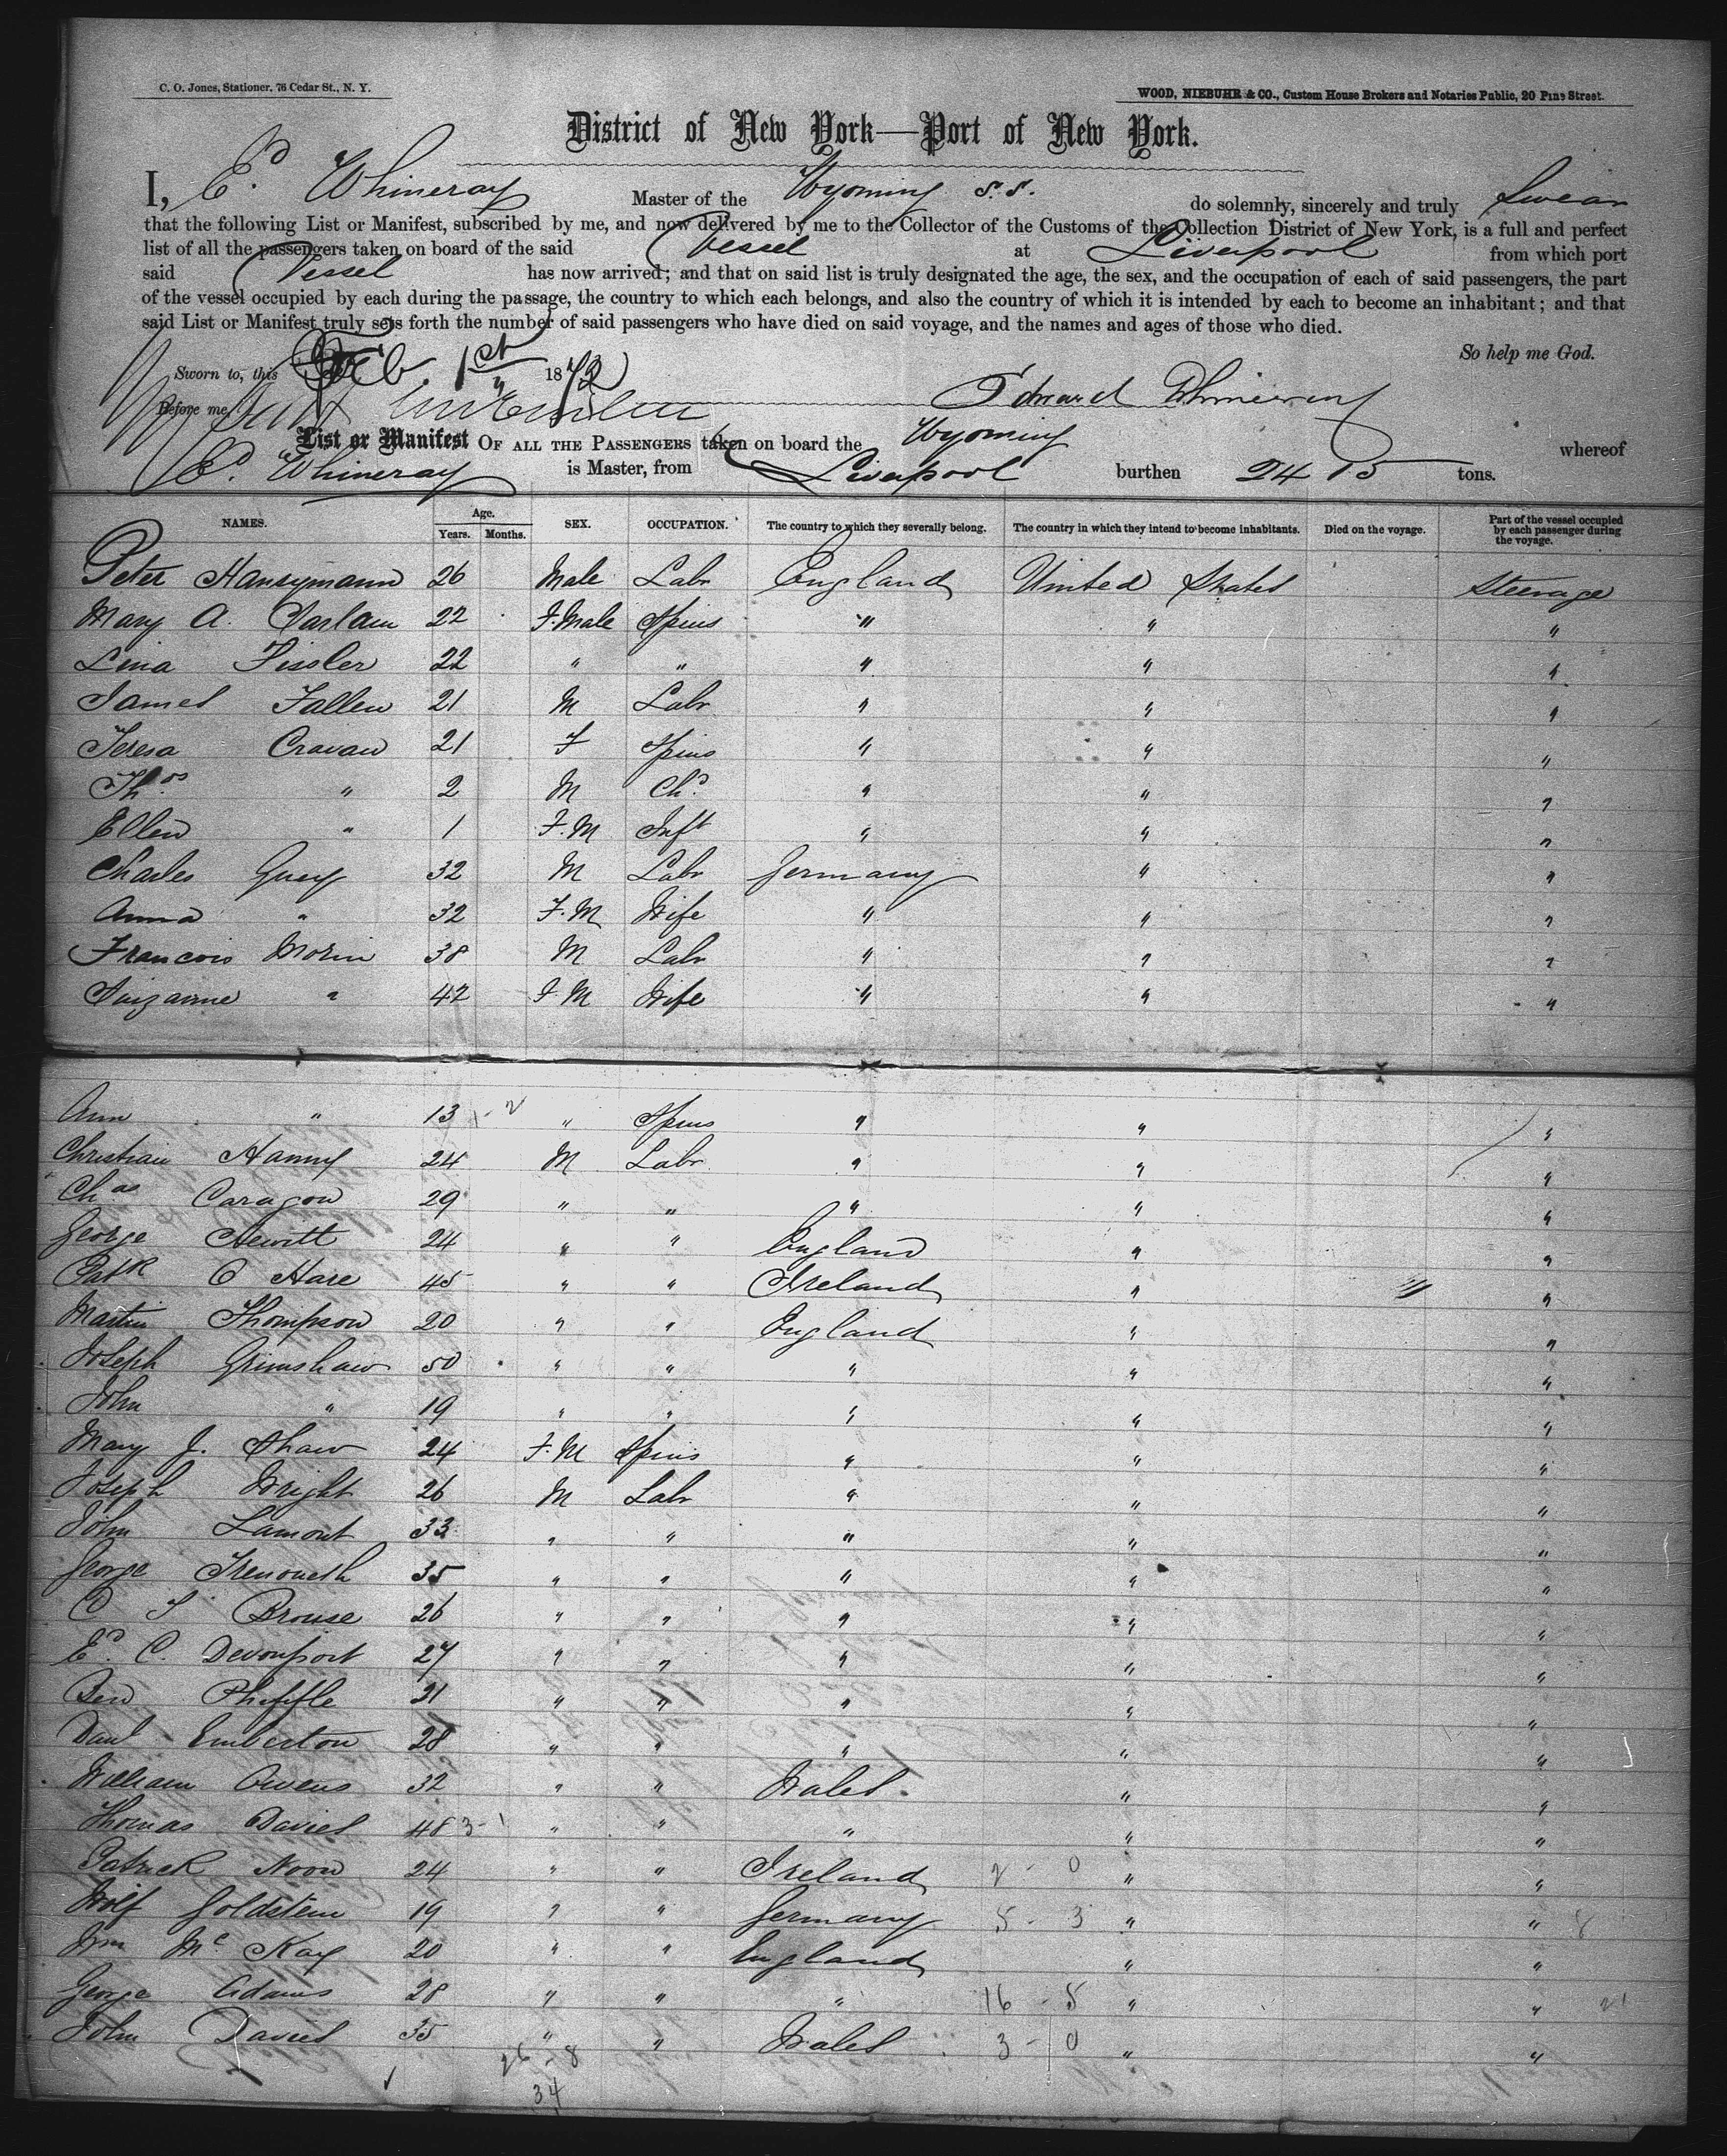 C. O. Jones, Stationer, 76 Cedar St., N. Y.
WOOD, NIEBUHR & CO., Custom House Brokers and Notaries Public, 20 Pine Street.
District of New York—Port of New York.
I, Ed. Whineray Master of the Wyoming S.S. do solemnly, sincerely and truly Swear
that the following List or Manifest, subscribed by me, and now delivered by me to the Collector of the Customs of the Collection District of New York, is a full and perfect
list of all the passengers taken on board of the said Vessel at Liverpool from which port
said Vessel has now arrived; and that on said list is truly designated the age, the sex, and the occupation of each of said passengers, the part
of the vessel occupied by each during the passage, the country to which each belongs, and also the country of which it is intended by each to become an inhabitant; and that
said List or Manifest truly sets forth the number of said passengers who have died on said voyage, and the names and ages of those who died.
So help me God.
Sworn to, this Feb. 1st 187
Before me Edward Whineray
List or Manifest OF ALL THE PASSENGERS taken on board the Wyoming whereof
Ed. Whineray is Master, from Liverpool burthen 2415 tons.
NAMES. Age. Years. Months. SEX. OCCUPATION. The country to which they severally belong. The country in which they intend to become inhabitants. Died on the voyage. Part of the vessel occupied by each passenger during the voyage.
Peter 26 Male Labr England United States Steerage
Mary A. 22 F.Male Spins " " "
Lina Fissler 22 " " " " "
James Fallen 21 M Labr " " "
Teresa Cravan 21 F Spins " " "
Thos " 2 M Chd " " "
Ellen " 1 F.M Inft " " "
Charles 32 M Labr Germany " "
Anna " 32 F.M Wife " " "
Francois Morin 38 M Labr " " "
Suizanne " 42 F.M Wife " " "
Ann " 13 1-2 " Spins " " "
Christian Hanny 24 M Labr " " "
Chas Caragon 29 " " " " "
George Hewitt 24 " " England " "
Patk O Hare 45 " " Ireland " "
Martin Thompson 20 " " England " "
Joseph Grimshaw 50 " " " " "
John " 19 " " " " "
Mary J. Shaw 24 F.M Spins " " "
Joseph Wright 26 M Labr " " "
John Lamont 33 " " " " "
George Trenoweth 35 " " " " "
C T Brouse 26 " " " " "
Ed. C. Devonport 27 " " " " "
Ben 21 " " " " "
Danl Emberton 28 " " " " "
William Owens 32 " " Wales " "
Thomas Davies 48 3-1 " " " " "
Patrick Noon 24 " " Ireland 2-0 " "
Wolf Goldstein 19 " " Germany 5-3 " " 8
Wm McKay 20 " " England " "
George Adams 28 " " " 16-5 " " 21
John Davies 35 " " Wales 3-0 " "
26-8
34